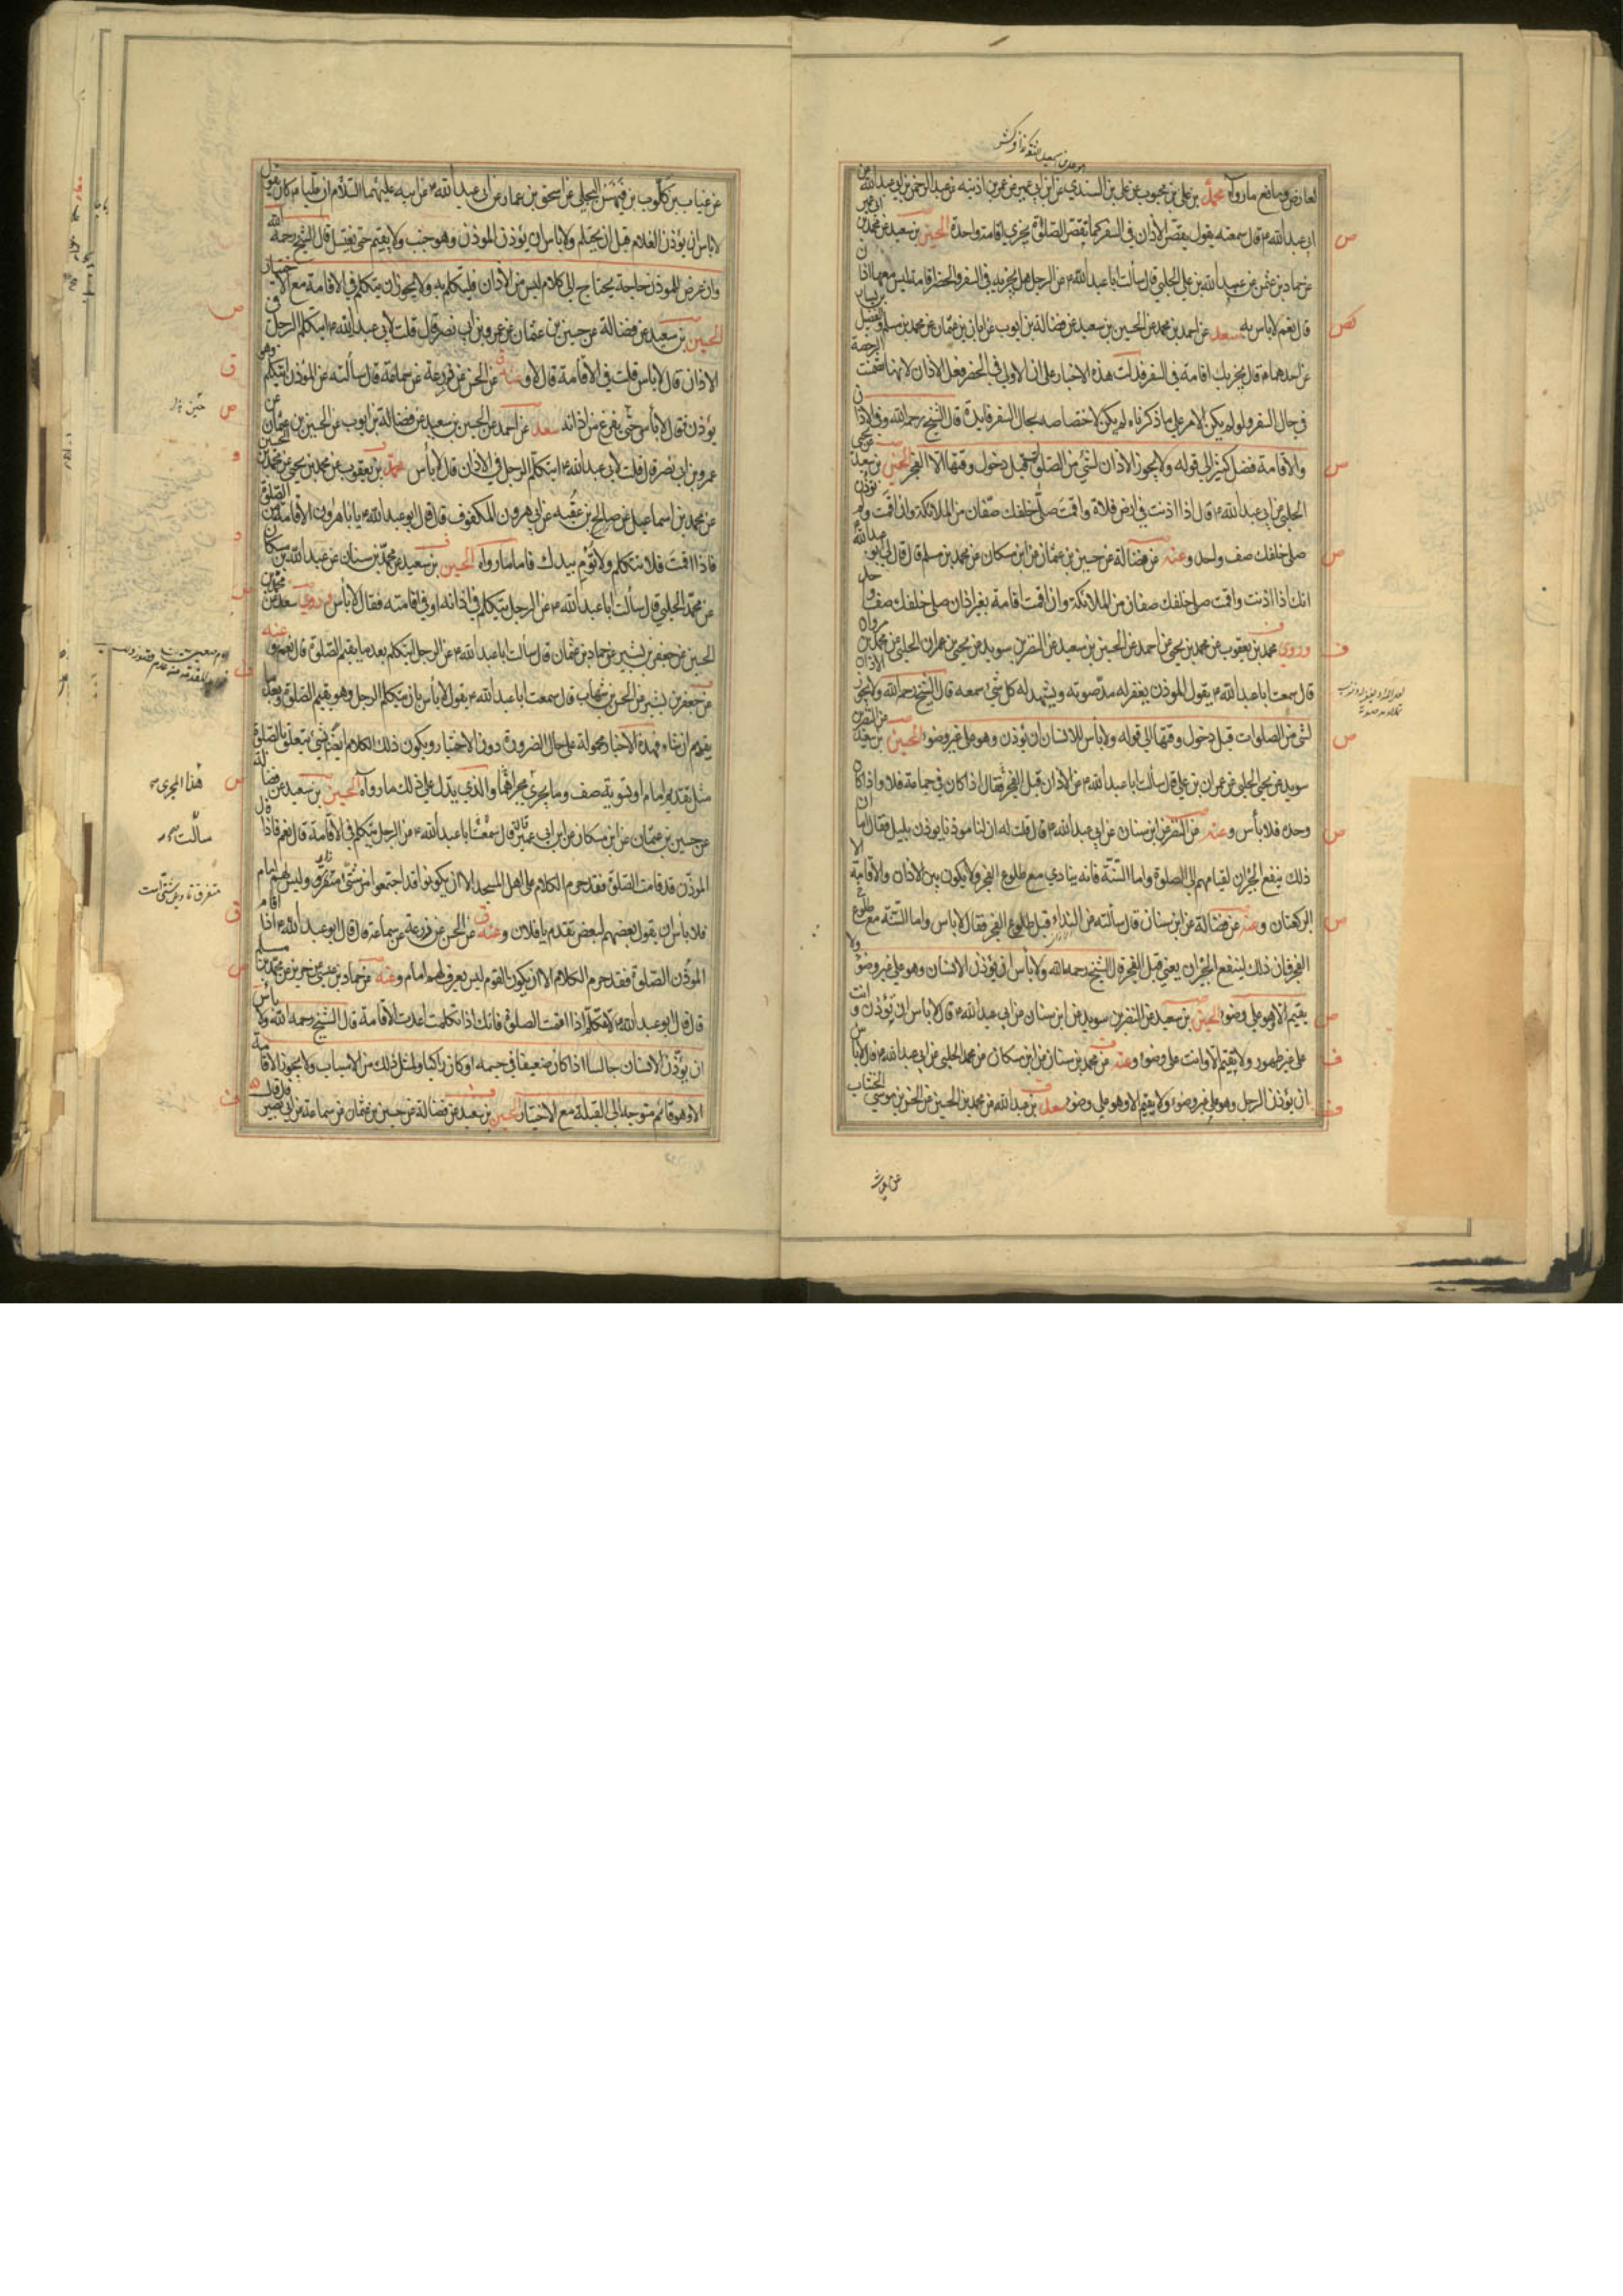 لعارض ومانع ما رواه محمد بن علي بن محبوب عن علي بن السندي عن ابن ابي عمير عن عمر بن اذينه عن عبد الرحمن بن ابي عبد الله عن
ابي عبد الله ع قال سمعته يقول يقصر الاذان في السفر كما تقصر الصلوة يجزي اقامة واحدة الحسين بن سعيد عن محمد بن ابي عمير
عن حماد بن عثمن عن عبيد الله بن علي الحلبي قال سألت ابا عبد الله ع عن الرجل هل يجزيه في السفر والحضر اقامة ليس معها اذان
قال نعم لا بأس به سعد عن احمد بن محمد عن الحسين بن سعيد عن فضالة بن ايوب عن ابان بن عثمان عن محمد بن مسلم والفضيل بن يسار
عن احدهما ع قال يجزيك اقامة في السفر فدلت هذه الاخبار على ان الاولى في الحضر فعل الاذان لانها تضمنت الرخصة
في حال السفر ولو لم يكن الامر على ما ذكرناه لم يكن لاختصاصه بحال السفر فايدة قال الشيخ رحمه الله وفي الاذان
والاقامة فضل كثير الى قوله ولا يجوز الاذان لشئ من الصلوة قبل دخول وقتها الا الفجر الحسين بن سعيد عن يحيى
الحلبي عن ابي عبد الله ع قال اذا اذنت في ارض فلاة واقمت صلى خلفك صفان من الملائكة وان اقمت ولم تؤذن
صلى خلفك صف واحد وعنه عن فضالة عن حسين بن عثمان عن ابن مسكان عن محمد بن مسلم قال قال لي ابو عبد الله ع
انك اذا اذنت واقمت صلى خلفك صفان من الملائكة وان اقمت اقامة بغير اذان صلى خلفك صف واحد
وروى محمد بن يعقوب عن محمد بن يحيى عن احمد عن الحسين بن سعيد عن النضر بن سويد عن يحيى بن عمران الحلبي عن محمد بن مروان
قال سمعت ابا عبد الله ع يقول الموذن يغفر له مد صوته ويشهد له كل شئ سمعه قال الشيخ رحمه الله ولا يجوز الاذان
لشئ من الصلوات قبل دخول وقتها الى قوله ولا بأس للانسان ان يؤذن وهو على غير وضوء الحسين بن سعيد عن النضر بن
سويد عن يحيى الحلبي عن عمران بن علي قال سألت ابا عبد الله ع عن الاذان قبل الفجر فقال اذا كان في جماعة فلا واذا كان
وحده فلا بأس وعنه عن النضر عن ابن سنان عن ابي عبد الله ع قال قلت له ان لنا موذنا يوذن بليل فقال اما ان
ذلك ينفع الجيران لقيامهم الى الصلوة واما السنة فانه ينادي مع طلوع الفجر ولا يكون بين الاذان والاقامة الا
الركعتان وعنه عن فضالة عن ابن سنان قال سألته عن النداء قبل طلوع الفجر فقال لا باس واما السنة مع طلوع
الفجر فان ذلك لينفع الجيران يعني قبل الفجر قال الشيخ رحمه الله ولا بأس ان يؤذن الانسان وهو على غير وضوء ولا
يقيم الا وهو على وضوء الحسين بن سعيد عن النضر بن سويد عن ابن سنان عن ابي عبد الله ع قال لا باس ان تؤذن وانت
على غير طهور ولا تقيم الا وانت على وضوء وعنه عن محمد بن سنان عن ابن مسكان عن محمد الحلبي عن ابي عبد الله ع قال لا باس
ان يؤذن الرجل وهو على غير وضوء ولا يقيم الا وهو على وضوء سعد بن عبد الله عن محمد بن الحسين عن الحسن بن موسى الخشاب
عن غياث
عن غياث بن كلوب بن فيهس البجلي عن اسحق بن عمار عن ابي عبد الله ع عن ابيه عليهما السلام ان عليا ع كان يقول
لا باس ان يؤذن الغلام قبل ان يحتلم ولا باس ان يؤذن الموذن وهو جنب ولا يقيم حتى يغتسل قال الشيخ رحمه الله
وان عرض للموذن حاجة يحتاج الى كلام ليس من الاذان فليتكلم به ولا يجوز ان يتكلم في الاقامة مع الاختيار
الحسين بن سعيد عن فضالة عن حسين بن عثمان عن عمرو بن ابي نصر قال قلت لابي عبد الله ع ايتكلم الرجل في
الاذان قال لا باس قلت في الاقامة قال لا وعنه عن الحسن عن زرعة عن سماعة قال سألته عن المؤذن ايتكلم وهو
يؤذن فقال لا بأس حتى يفرغ من اذانه سعد عن احمد عن الحسين بن سعيد عن فضالة بن ايوب عن الحسين بن عثمان عن
عمرو بن ابي نصر قال قلت لابي عبد الله ع ايتكلم الرجل في الاذان قال لا بأس محمد بن يعقوب عن محمد بن يحيى عن محمد بن الحسين
عن محمد بن اسماعيل عن صالح بن عقبه عن ابي هرون المكفوف قال قال ابو عبد الله ع يا باهرون الاقامة من الصلوة
فاذا اقمت فلا تتكلم ولا تؤم بيدك فاما ما رواه الحسين بن سعيد عن محمد بن سنان عن عبد الله بن مسكان
عن محمد الحلبي قال سألت ابا عبد الله ع عن الرجل يتكلم في اذانه او في اقامته فقال لا بأس وروى سعد عن محمد بن
الحسين عن جعفر بن بشير عن حماد بن عثمان قال سألت ابا عبد الله ع عن الرجل ايتكلم بعد ما يقيم الصلوة قال نعم وعنه
عن جعفر بن بشير عن الحسن بن شهاب قال سمعت ابا عبد الله ع يقول لا بأس بان يتكلم الرجل وهو يقيم الصلوة وبعد ما
يقيم ان شاء فهذه الاخبار محمولة على حال الضرورة دون الاختيار ويكون ذلك الكلام ايضا بشئ يتعلق بالصلوة
مثل تقديم امام او تسوية صف وما يجري مجراهما والذي يدل على ذلك ما رواه الحسين بن سعيد عن فضالة
عن حسين بن عثمان عن ابن مسكان عن ابن ابي عمير قال سمعت ابا عبد الله ع عن الرجل يتكلم في الاقامة قال نعم فاذا قال
الموذن قد قامت الصلوة فقد حرم الكلام على اهل المسجد الا ان يكونوا قد اجتمعوا من شتى متفرق وليس لهم امام
فلا بأس ان يقول بعضهم لبعض تقدم يا فلان وعنه عن الحسن عن زرعة عن سماعة قال قال ابو عبد الله ع اذا اقام
الموذن الصلوة فقد حرم الكلام الا ان يكون القوم ليس يعرف لهم امام وعنه عن حماد بن عيسى عن حريز عن محمد بن مسلم
قال قال ابو عبد الله ع لا تتكلم اذا اقمت الصلوة فانك اذا تكلمت اعدت الاقامة قال الشيخ رحمه الله ولا بأس
ان يؤذن الانسان جالسا اذا كان ضعيفا في جسمه او كان راكبا ولمثل ذلك من الاسباب ولا يجوز الاقامة
الا وهو قائم متوجه الى القبلة مع الاختيار الحسين بن سعيد عن فضالة عن حسين بن عثمان عن سماعة عن ابي بصير قال قال
هذا المجرى
سألت